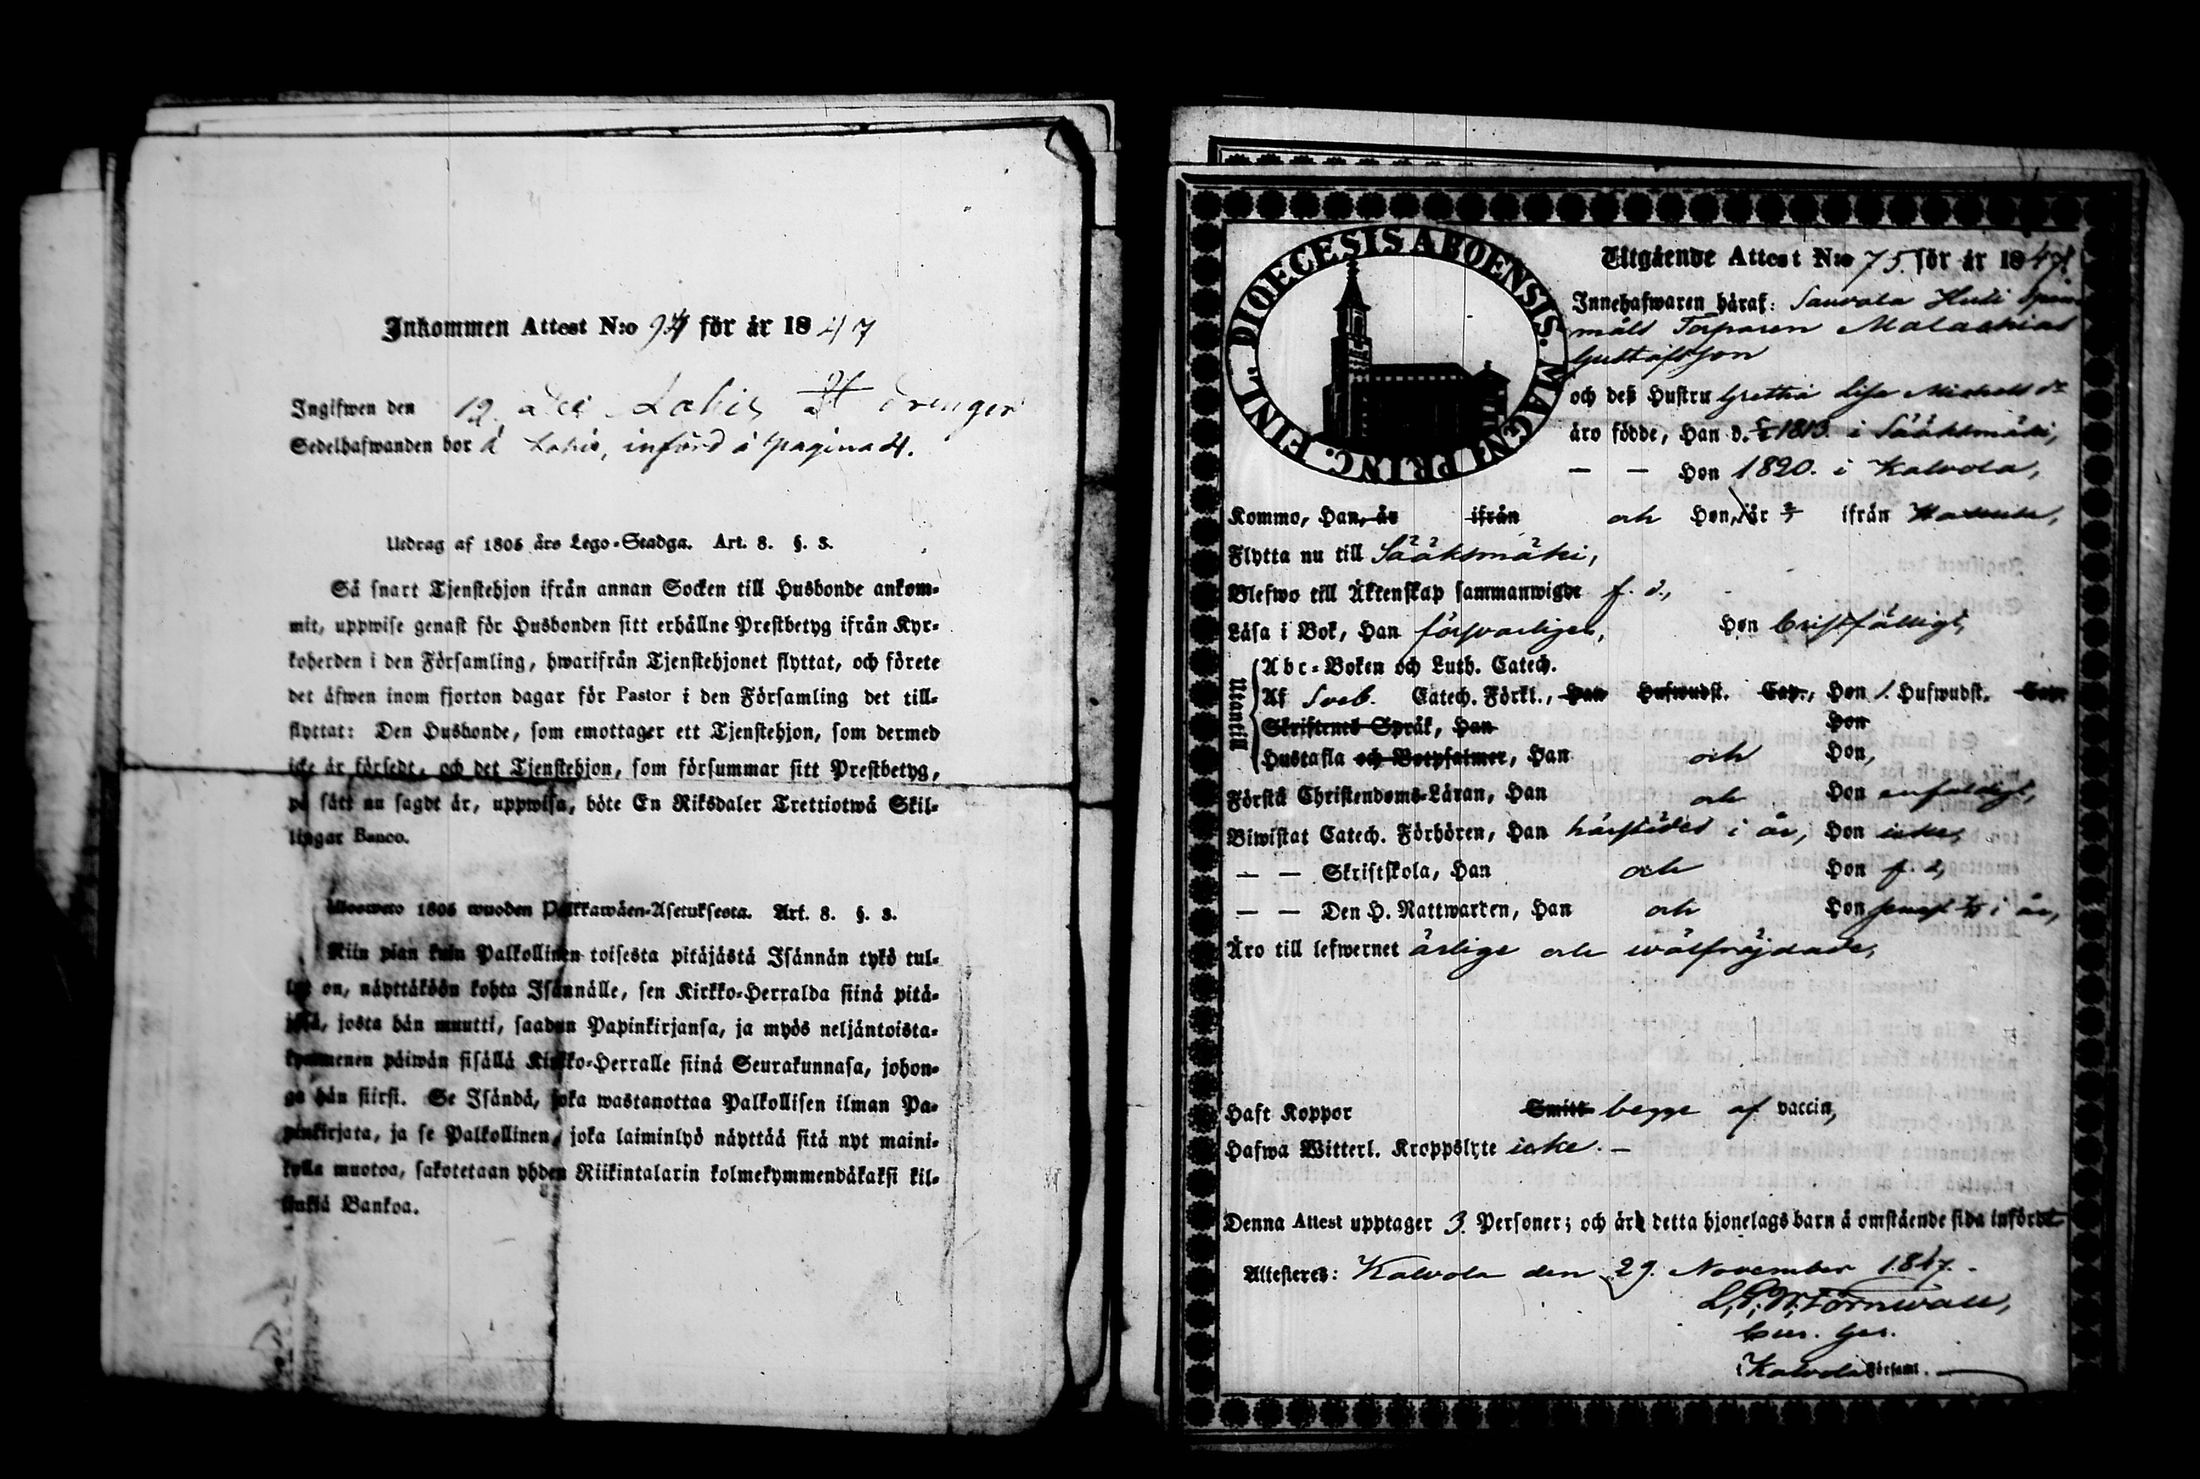 Inkommen Attest N:o 94 för år 1847
Ingifwen den 12 Dec Lahis drenger
Sedelhafwanden bor å Lahis, införd å pagina 4.
Utdrag af 1805 års Lego-Stadga. Art. 8. §. 3.
Så snart Tjenstehjon ifrån annan Socken till Husbonde ankom-
mit, uppwise genast för Husbonden sitt erhållne Prestbetyg ifrån Kyr-
koherden i den Församling, hwarifrån Tjenstehjonet flyttat, och förete
det äfwen inom fjorton dagar för Pastor i den Församling det till-
flyttat: Den Husbonde, som emottager ett Tjenstehjon, som dermed
icke är försedt, och det Tjenstehjon, som försummar sitt Prestbetyg,
på sätt nu sagdt är, uppwisa, böte En Riksdaler Trettiotwå Skil-
lingar Banco.
Uloswето 1805 wuoden Palkkawäen-Asetuksesta. Art. 8. §. 3.
Niin pian kuin Palkollinen toisesta pitäjästä Isännän tykö tul-
lut on, näyttäköön kohta Isännälle, sen Kirkko-Herralda siinä pitä-
jäsä, josta hän muutti, saadun Papinkirjansa, ja myös neljäntoista-
kymmenen päiwän sisällä Kirkko-Herralle siinä Seurakunnasa, johon-
ga hän siirsi. Se Isändä, joka wastanottaa Palkollisen ilman Pa-
pinkirjata, ja se Palkollinen, joka laiminlyö näyttää sitä nyt maini-
tulla muotoa, sakotetaan yhden Riikintalarin kolmekymmendäkaksi kil-
linkiä Bankoa.
DIOECESIS ABOENSIS. MAGNI PRINC. FINL.
Utgående Attest N:o 75 för år 1847
Innehafwaren häraf: Sauvala Huti
Torparen Malachias
Gustafsson
och deß Hustru Gretha Lisa Michels dr
äro födde, Han d. 1813. i Sääksmäki,
— — Hon 1820. i Kalvola,
Kommo, Han, år ifrån och Hon, år ifrån
Flytta nu till Sääksmäki,
Blefwo till Äktenskap sammanwigde f. d.,
Läsa i Bok, Han försvarligen, Hon bristfälligt,
Utantill
Abc-Boken och Luth. Catech.
Af Sveb. Catech. Förkl., Han Hufwudst. Cap., Hon 1. Hufwudst. Cap.
Skriftenes Språk, Han Hon
Hustafla och Botpsalmer, Han och Hon,
Förstå Christendoms-Läran, Han och Hon enfaldigt,
Biwistat Catech. Förhören, Han härstädes i år, Hon icke,
— — Skriftskola, Han och Hon f. d,
— — Den H. Nattwarden, Han och Hon senast i år,
Äro till lefwernet ärlige och wälfrejdade,
Haft Koppor Smitt begge af vaccin,
Hafwa Witterl. Kroppslyte icke. —
Denna Attest upptager 3. Personer; och äro detta hjonelags barn å omstående sida införde
Attesteres: Kalvola den 29. November 1847.
L. W. Törnwall,
Kalvola Församl.